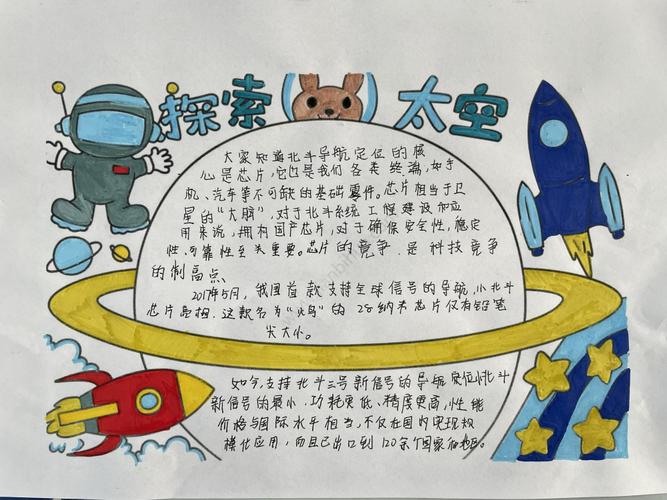 探索 太空
大家知道北斗导航定位的核
心是芯片,它也是我们各类终端,如手
机、汽车等不可缺的基础零件。芯片相当于卫
星的“大脑”,对于北斗系统工程建设和应
用来说,拥有国产芯片,对于确保安全性,稳定
性、可靠性至关重要。芯片的竞争,是科技竞争
的制高点
2017年5月,我国首款支持全球信号的导航,小北斗
芯片亮相.这款名为“火鸟”的28纳米芯片仅有铅笔
尖大小。
如今,支持北斗三号新信号的导航定位北斗
新信号的最小.功耗更低、精度更高,性能
价格与国际水平相当,不仅在国内实现规
模化应用,而且已出口到120余个国家和地区。